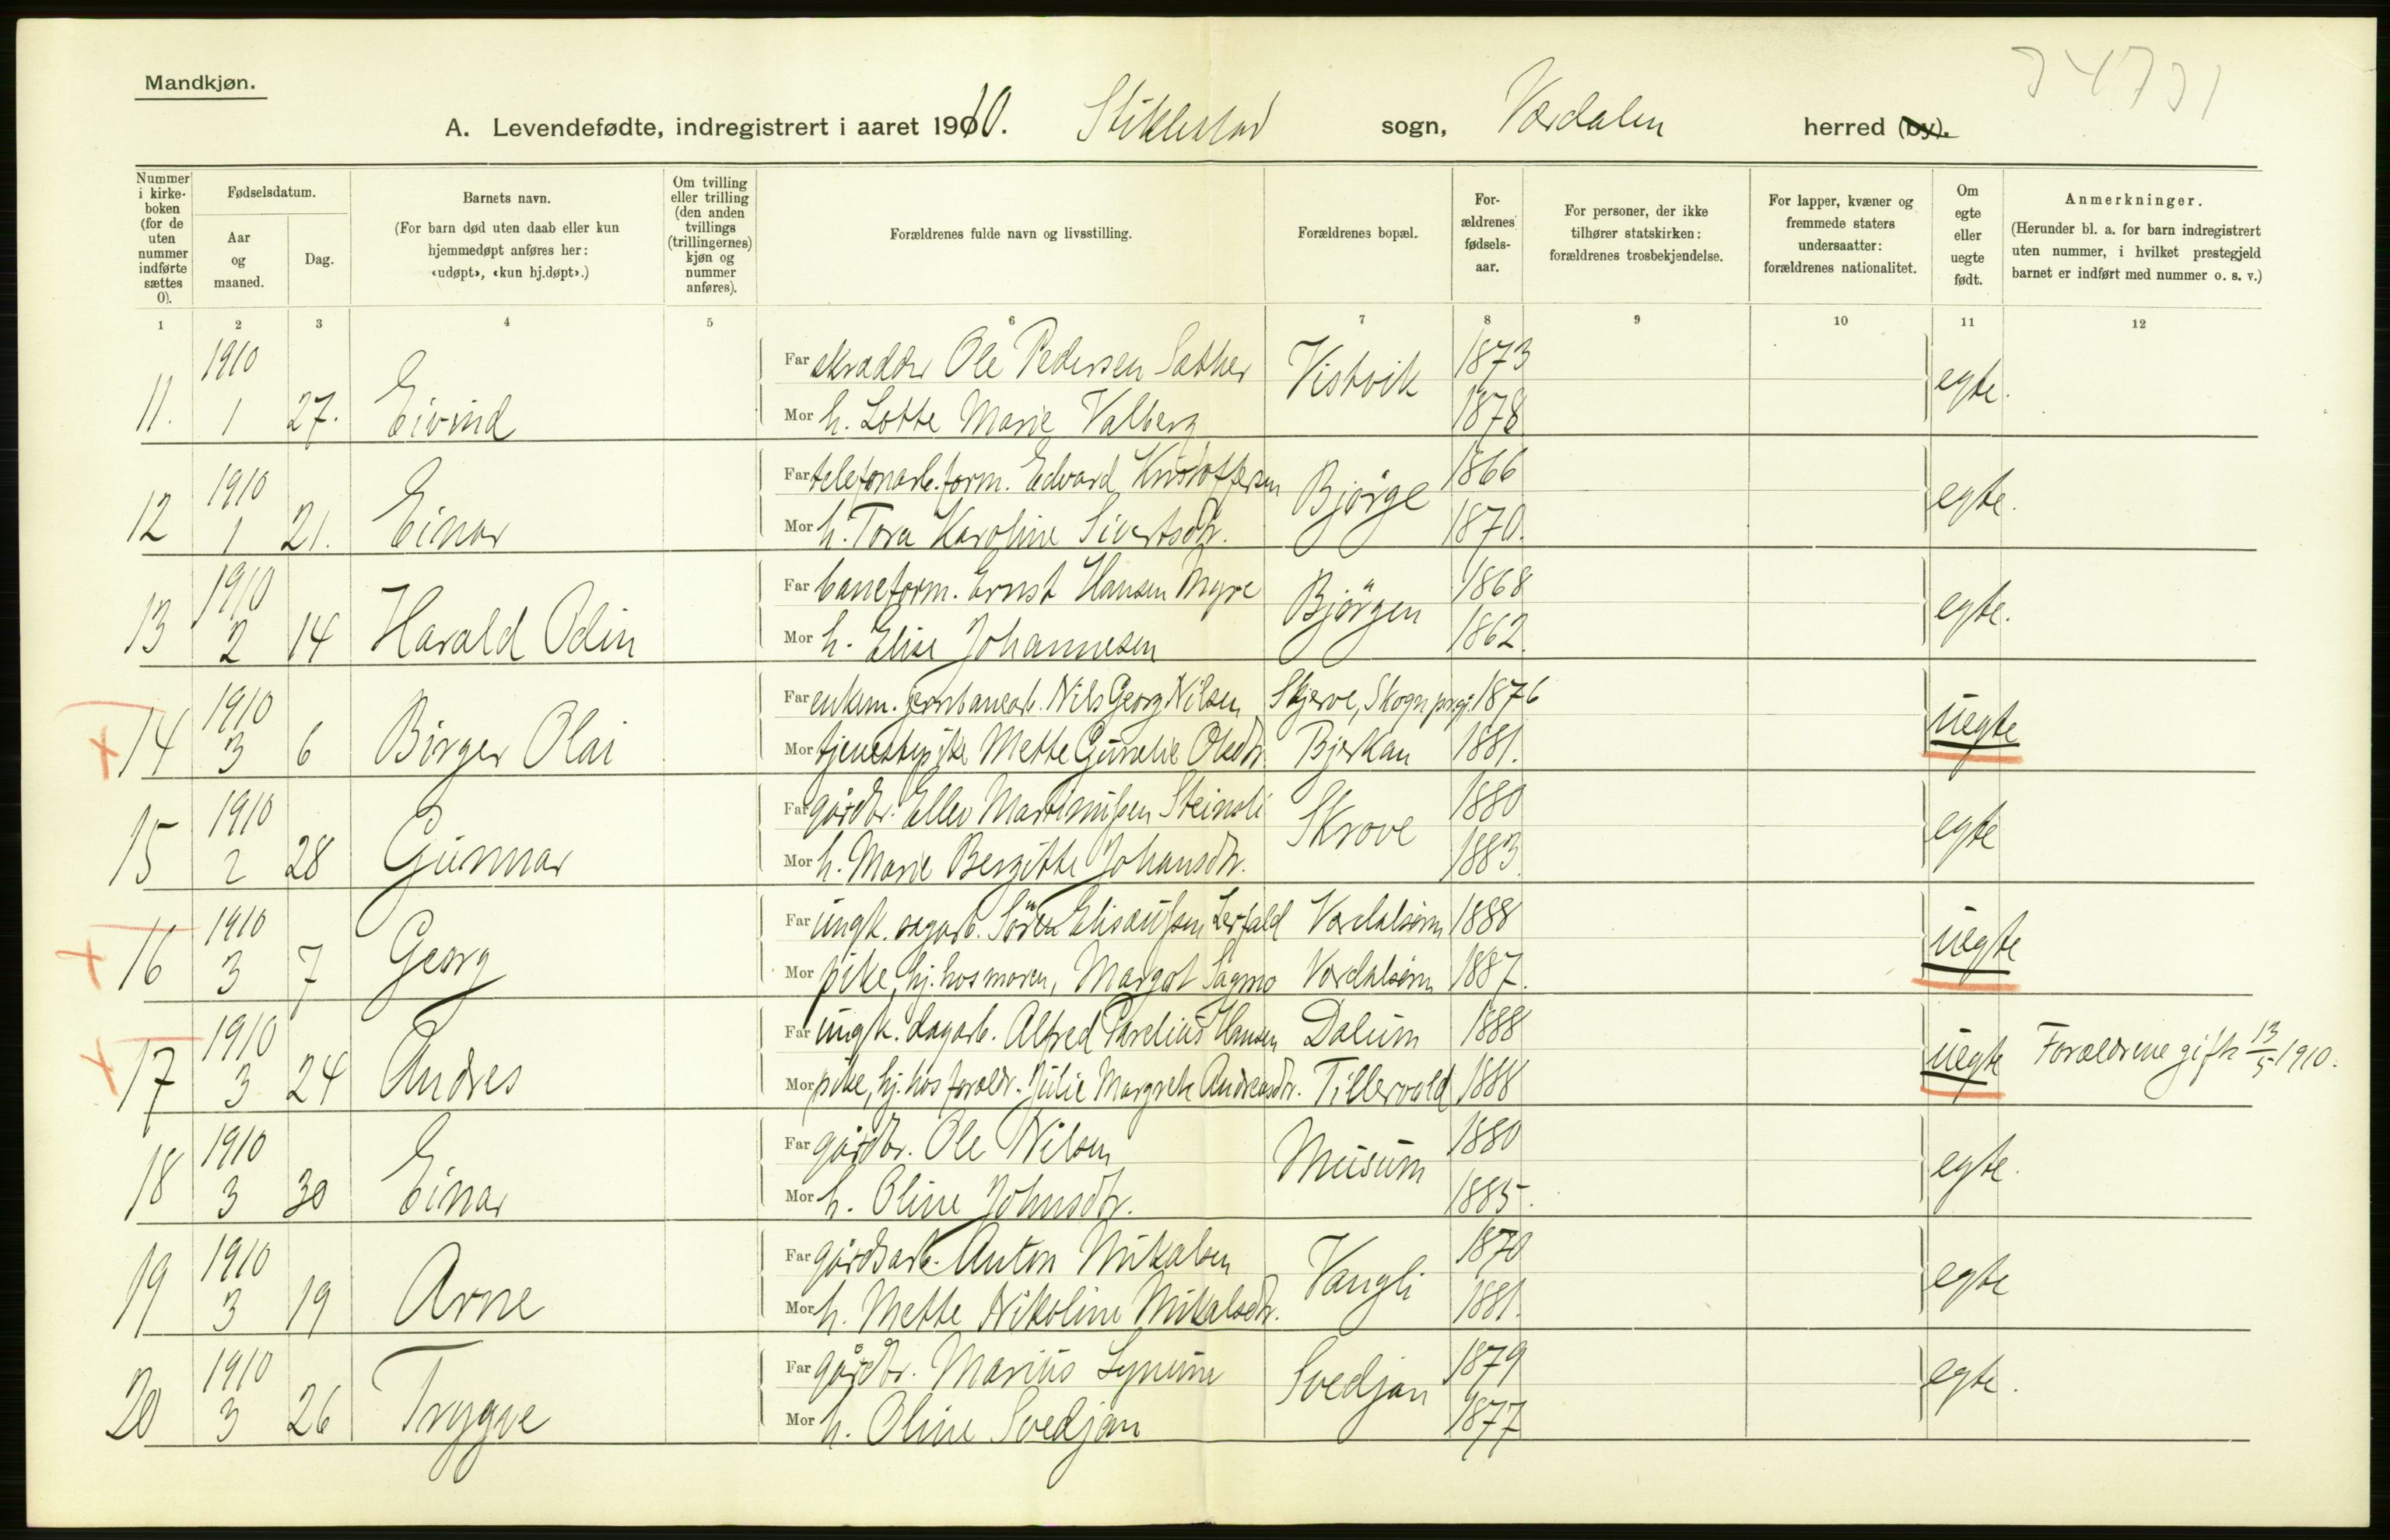 Mandkjøn.
34731
A. Levendefødte, indregistrert i aaret 1910. Stiklestad sogn, Værdalen herred (by).
Nummer i kirkeboken (for de uten nummer indførte sættes 0).
Fødselsdatum.
Aar og maaned.
Dag.
Barnets navn.
(For barn død uten daab eller kun hjemmedøpt anføres her: «udøpt», «kun hj.døpt».)
Om tvilling eller trilling (den anden tvillings (trillingernes) kjøn og nummer anføres).
Forældrenes fulde navn og livsstilling.
Forældrenes bopæl.
For-ældrenes fødsels-aar.
For personer, der ikke tilhører statskirken: forældrenes trosbekjendelse.
For lapper, kvæner og fremmede staters undersaatter: forældrenes nationalitet.
Om egte eller uegte født.
Anmerkninger.
(Herunder bl. a. for barn indregistrert uten nummer, i hvilket prestegjeld barnet er indført med nummer o. s. v.)
1 2 3 4 5 6 7 8 9 10 11 12
11. 1910 1 27. Eivind Far skrædder Ole Pedersen Sæther Vistvik 1873 egte.
Mor h. Lotte Marie Valberg 1878
12 1910 1 21. Einar Far telefonarb.form. Edvard Kristoffersen Bjørge 1866 egte.
Mor h. Tora Karoline Sivertsdtr. 1870.
13 1910 2 14 Harald Odin Far baneform. Ernst Hansen Myre Bjørgen 1868 egte.
Mor h. Elise Johannesen 1862.
14 1910 3 6 Birger Olai Far enkem. jernbanearb. Nils Georg Nilsen Skjerve, Skogn prgj. 1876 uegte
Mor tjenestepike Mette Gurælie Olsdtr. Bjerkan 1881.
15 1910 2 28 Gunnar Far gårdbr. Ellev Martinussen Steinsli Skrove 1880 egte
Mor h. Marie Bergitte Johansdtr. 1883.
16 1910 3 7 Georg Far ungk. sagarb. Søren Elisæussen Lerfald Værdalsøren 1888 uegte
Mor pike, hj. hos moren, Margot Sagmo Værdalsøren 1887.
17 1910 3 24 Andres Far ungk. dagarb. Alfred Parelius Hansen Dalum 1888 uegte Forældrene gift 13/5 1910.
Mor pike, hj. hos forældr. Julie Margrete Andreasdtr. Tillervald 1888
18 1910 3 30 Einar Far gårdbr. Ole Nilsen Musum 1880 egte.
Mor h. Oline Johnsdtr. 1885.
19 1910 3 19 Arne Far gårdsarb. Anton Mikalsen Vangli 1870 egte
Mor h. Mette Nikoline Mikalsdtr. 1881.
20 1910 3 26 Trygve Far gårdbr. Marius Lynum Svedjan 1879 egte.
Mor h. Oline Svedjan 1877